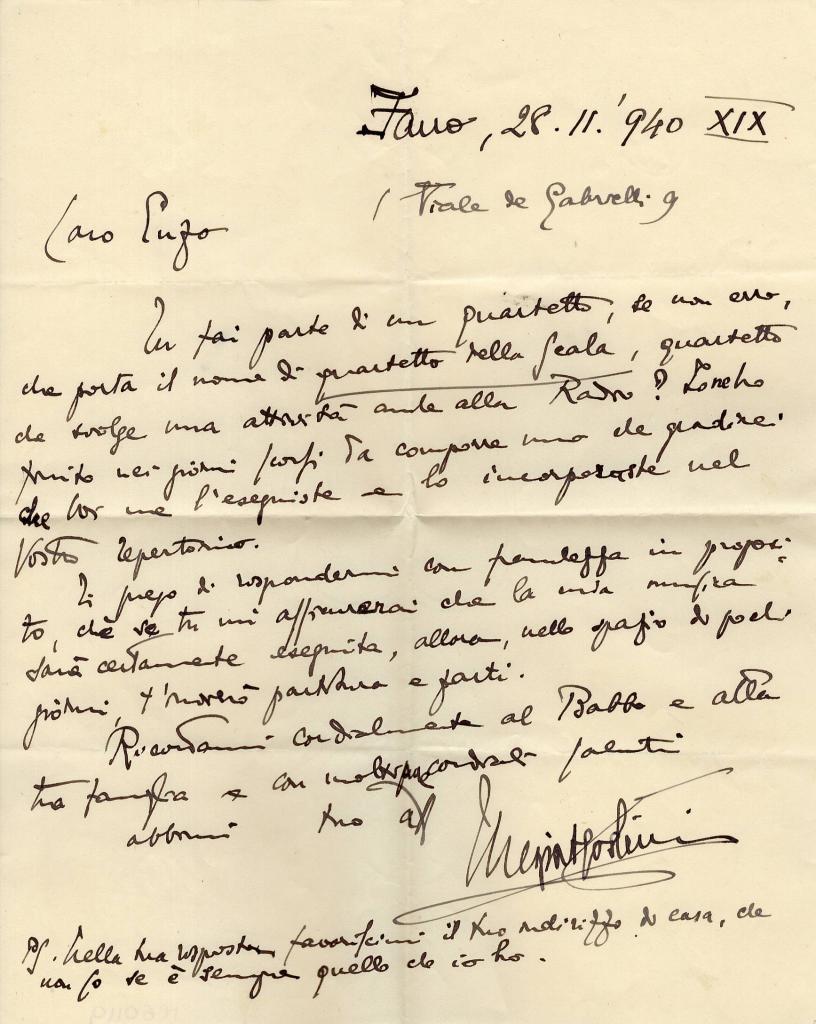 Fano, 28.11.'940 XIX
Viale de Gabrielli 9
Caro Enzo
Tu fai parte di un quartetto, se non erro,
che porta il nome di quartetto della Scala, quartetto
che svolge una attività anche alla Radio? Ionchò
finito nei giorni scorsi da comporre uno che gradirei
che Voi me l'eseguiste e lo incorporaste nel
Vostro repertorio.
Ti prego di rispondermi con franchezza in proposi-
to, chè se tu mi assicurerai che la mia musica
sarà certamente eseguita, allora, nello spazio di pochi
giorni, t'invierò partitura e parti.
Ricordami cordialmente al Babbo e alla
tua famiglia e con cordiali saluti
abbimi tuo
PS. Nella tua risposta favoriscimi il tuo indirizzo di casa, che
non so se è sempre quello che io ho.